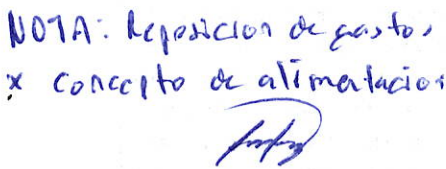 NOTA: Reposicion de gastos
x concepto de alimentacion